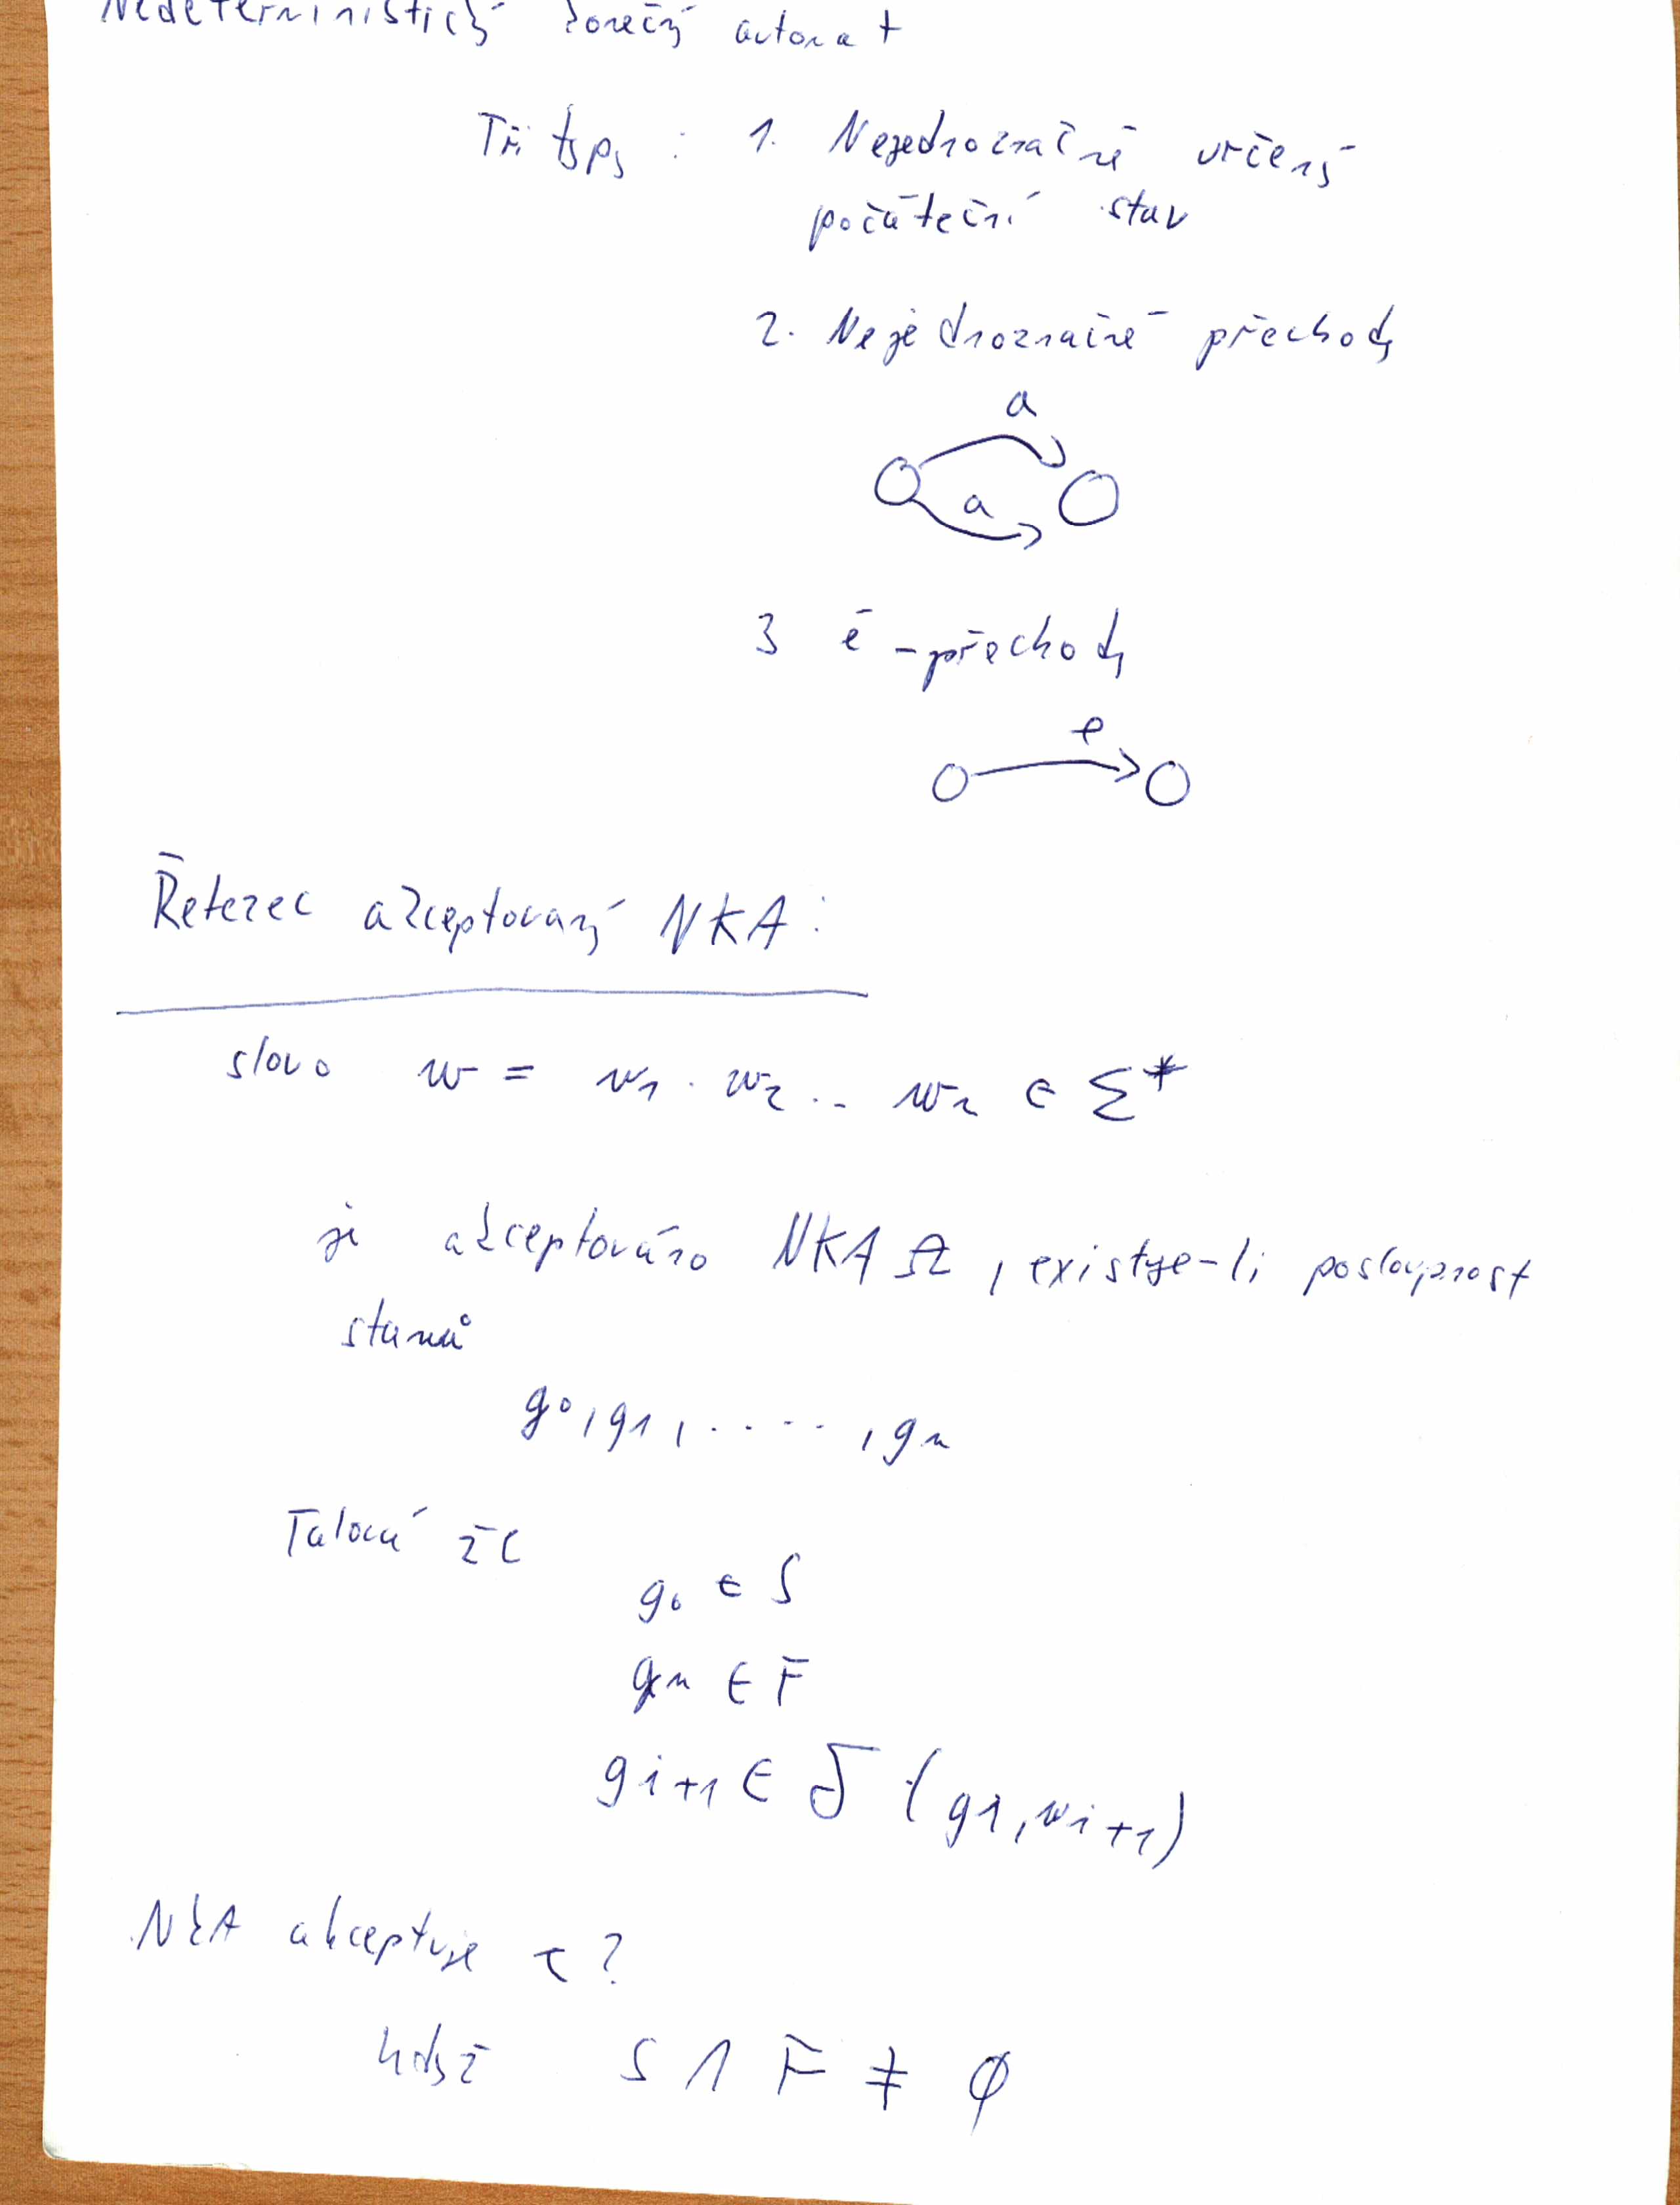 Nedeterministický konečný automat
Tři typy : 1. Nejednoznačně určený
počáteční stav
2. Nejednoznačné přechody
a
a
3 e -přechody
e
Řetezec akceptovaný NKA:
slovo w = w1 . w2 .. wn ∈ Σ*
je akceptováno NKA, existuje-li posloupnost
stavů
q0, q1, ....., qn
Taková že
q0 ∈ S
qn ∈ F
qi+1 ∈ δ (qi, wi+1)
NKA akceptuje ?
když S ∩ F ≠ Ø